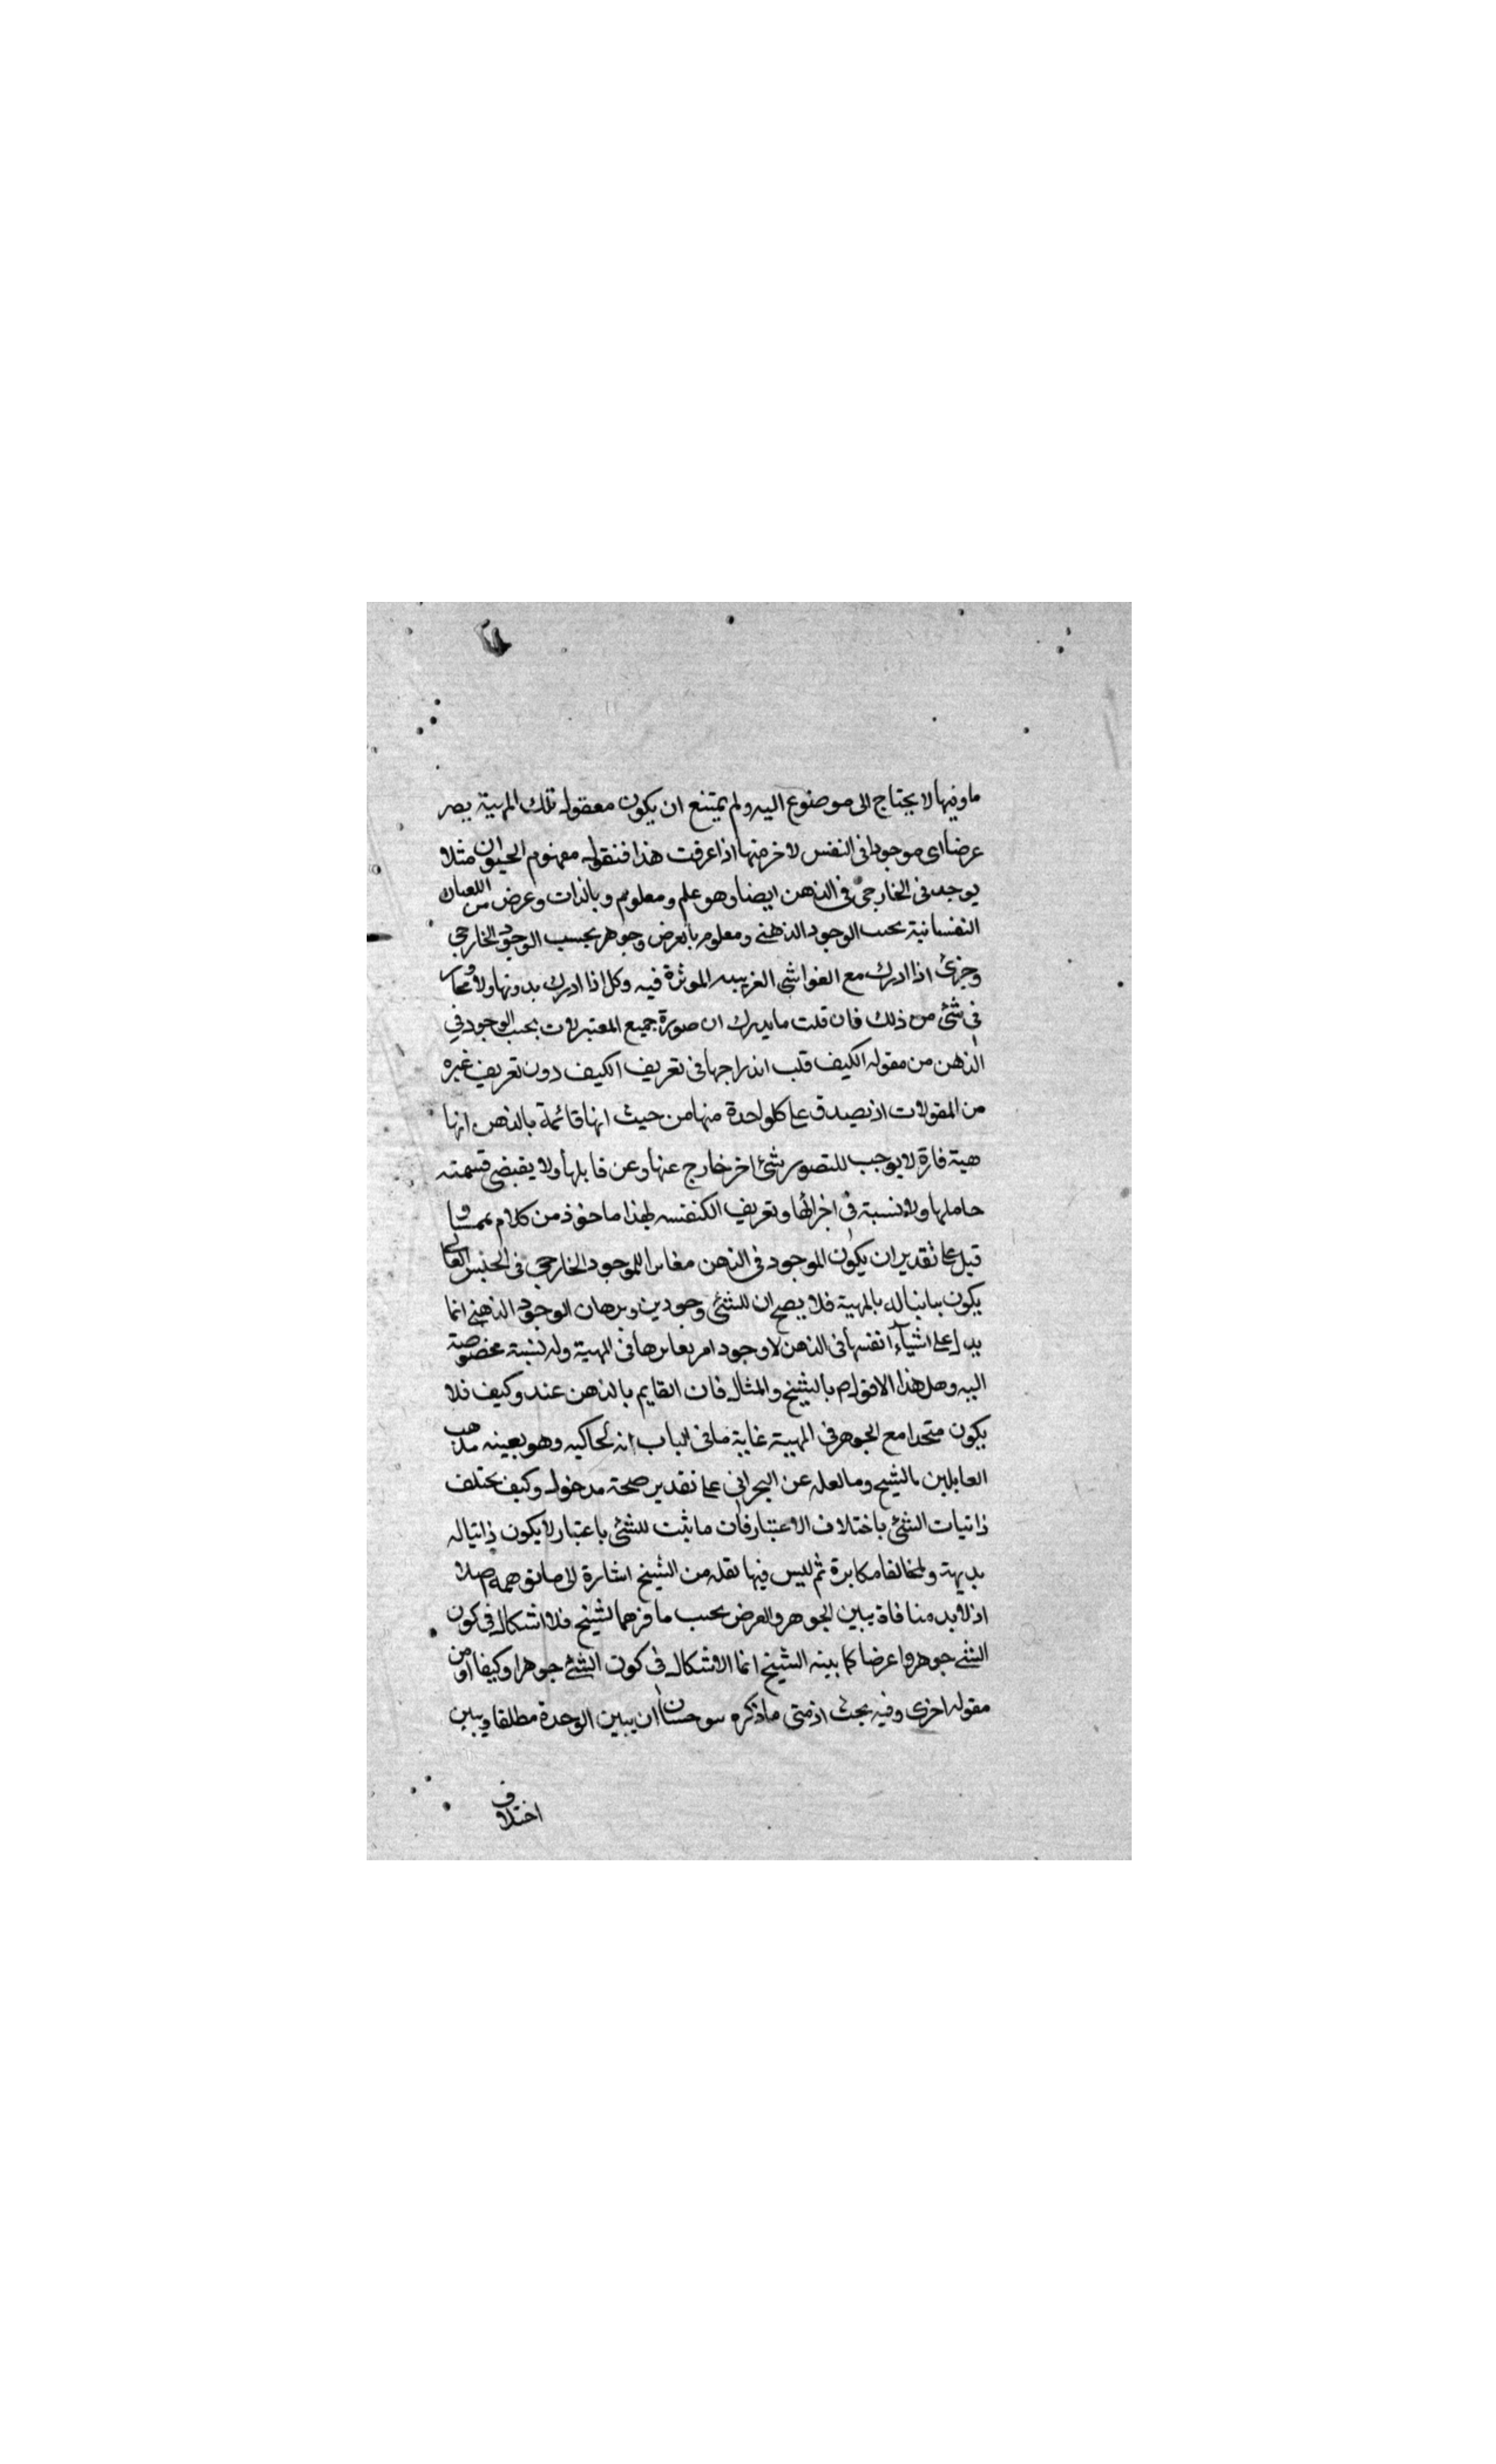 ما وفيها لا يحتاج الى موضوع اليه ولم يمتنع ان يكون معقوله تلك المهية يصر
عرضا اى موجودا فى النفس لا خر منها اذا عرفت هذا فنقول مفهوم الحيوان مثلا
يوجد فى الخارجى فى الذهن ايضا وهو علم ومعلوم وبالذات وعرض من
النفسانية بحسب الوجود الذهنى ومعلوم بالعرض وجوهر بحسب الوجود الخارجى
وجزئ اذا ادرك مع الغواشى الغريبه الموثرة فيه وكل اذا ادرك بدونها ولا
فى شئ من ذلك فان قلت ما يدرك ان صورة جميع المعتبرلات بحسب الوجود فى
الذهن من مقوله الكيف قلب اندراجها فى تعريف الكيف دون تعريف غيره
من المقولات اذ تصدق على كل واحدة منها من حيث انها قائمة بالذهن انها
هية قارة لا يوجب للتصور شئ اخر خارج عنها وعن قابلها ولا يقبضى قسمته
حاملها ولا نسبة فى اجزائها وتعريف الكنفسه لهذا ماخوذ من كلام
قيل على تقدير ان يكون الموجود فى الذهن مغاير اللموجود الخارجى فى الجنس العالى
يكون مباينا له بالمهية فلا يصح ان للشئ وجودين وبرهان الوجود الذهنى انما
يدل على اشياء انفسها فى الذهن لا وجود امر يغايرها فى المهية وله نسبة مخصوصة
اليه وهل هذا الا قولهم بالشيخ والمثال فان القايم بالذهن عنده كيف فلا
يكون متحدا مع الجوهر فى المهية غاية ما فى الباب انه يحاكيه وهو بعينه مذهب
العاىلين بالشيح وما نعله عن البحرانى على تقدير صحة مدخول وكيف يختلف
ذاتيات الشئ باختلاف الاعتبار فان ما يثبت للشئ باعتبار لا يكون ذاتيا له
بديهة ولمخالفا مكابرة ثم ليس فيها نقله من الشيخ اشارة لى ما توهمه اصلا
اذ لا بد منافاة بين الجوهر والعرض بحسب ما فرهما لشيخ فلا اشكال فى كون
الشئ جوهروا عرضا كما بينه الشيخ انما الاشكال فى كون الشئ جوهرا وكيفا او من
مقوله اخرى وفيه بحث اذ متى ما ذكره سوحسان ان يبين الوحدة مطلقا وبين
اختلاف